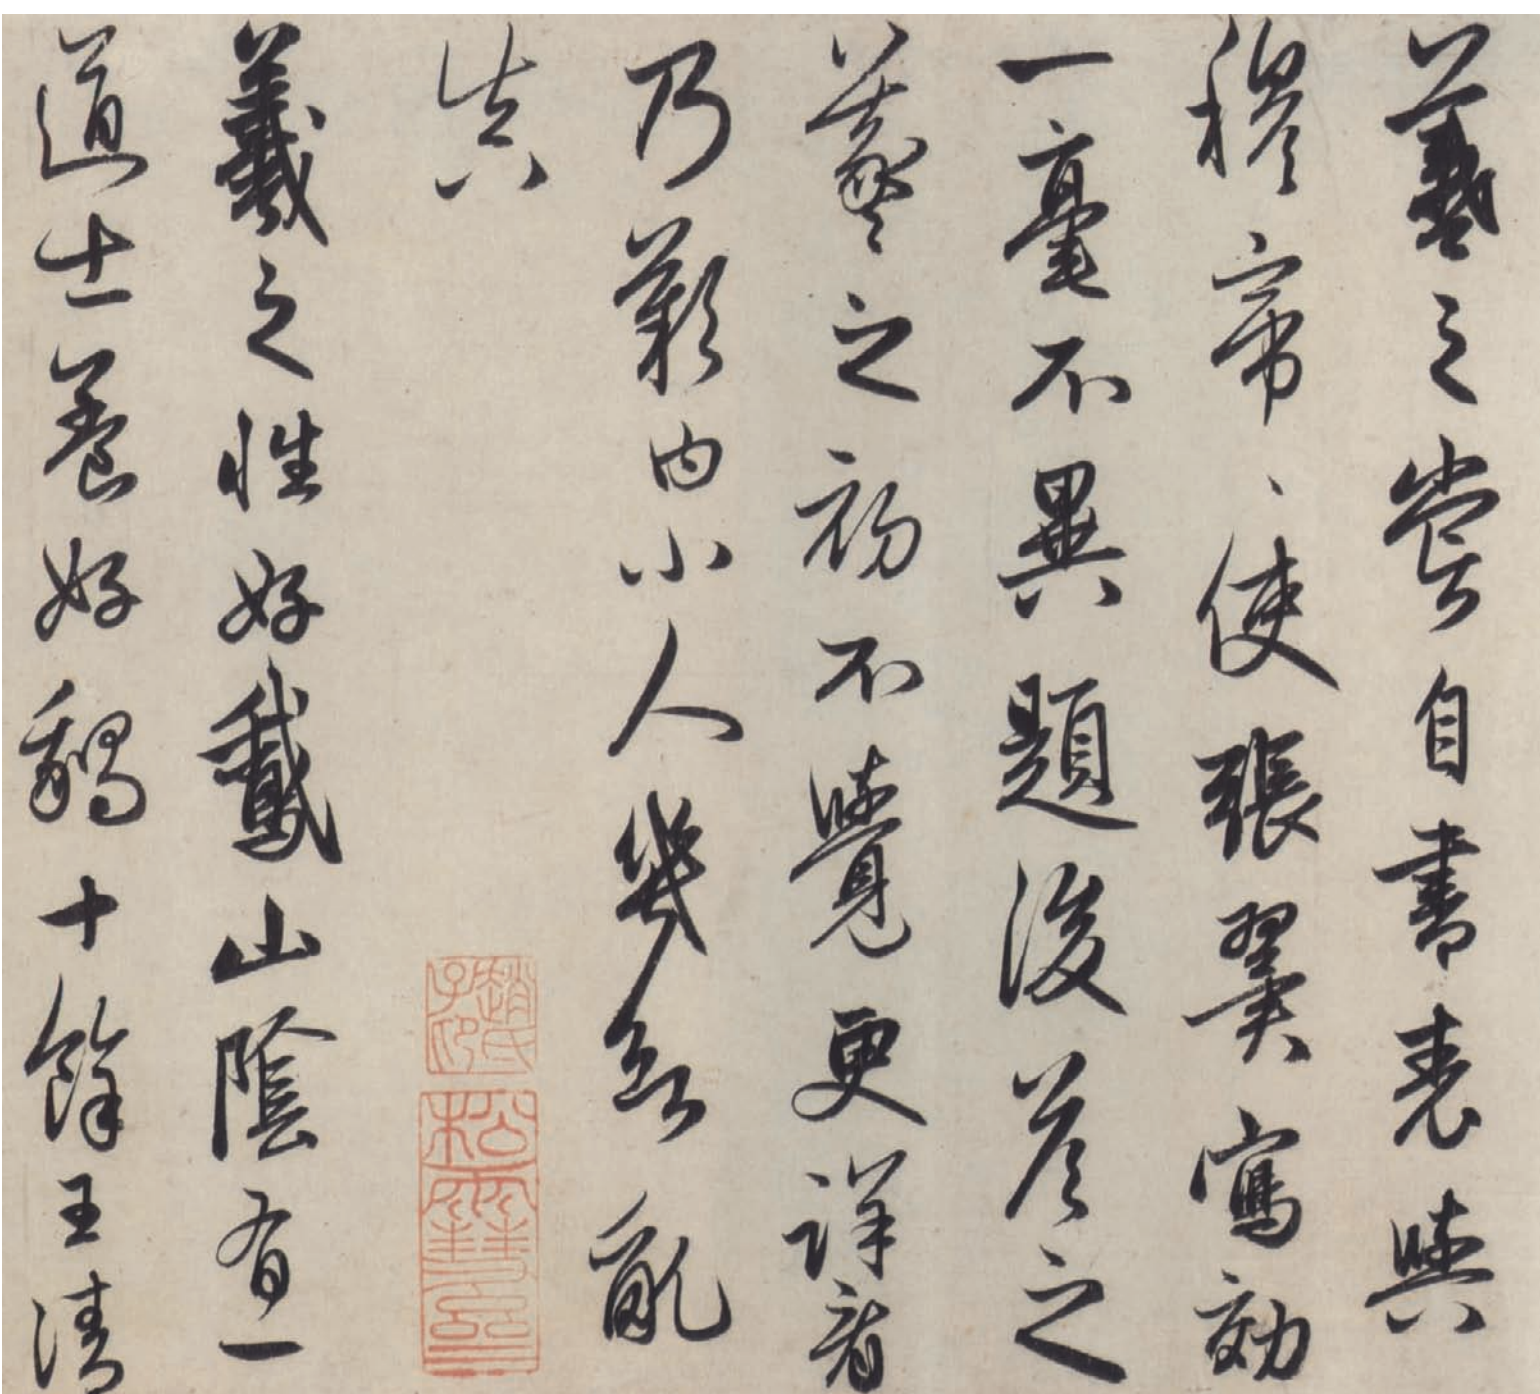 羲之嘗自書表與
穆帝、使張翼寫効
一毫不異題後答之
羲之初不覺更詳看
乃歎曰小人幾欲亂
真
趙氏子昂
松雪齋
羲之性好鵝山陰有一
道士養好鵝十餘王清